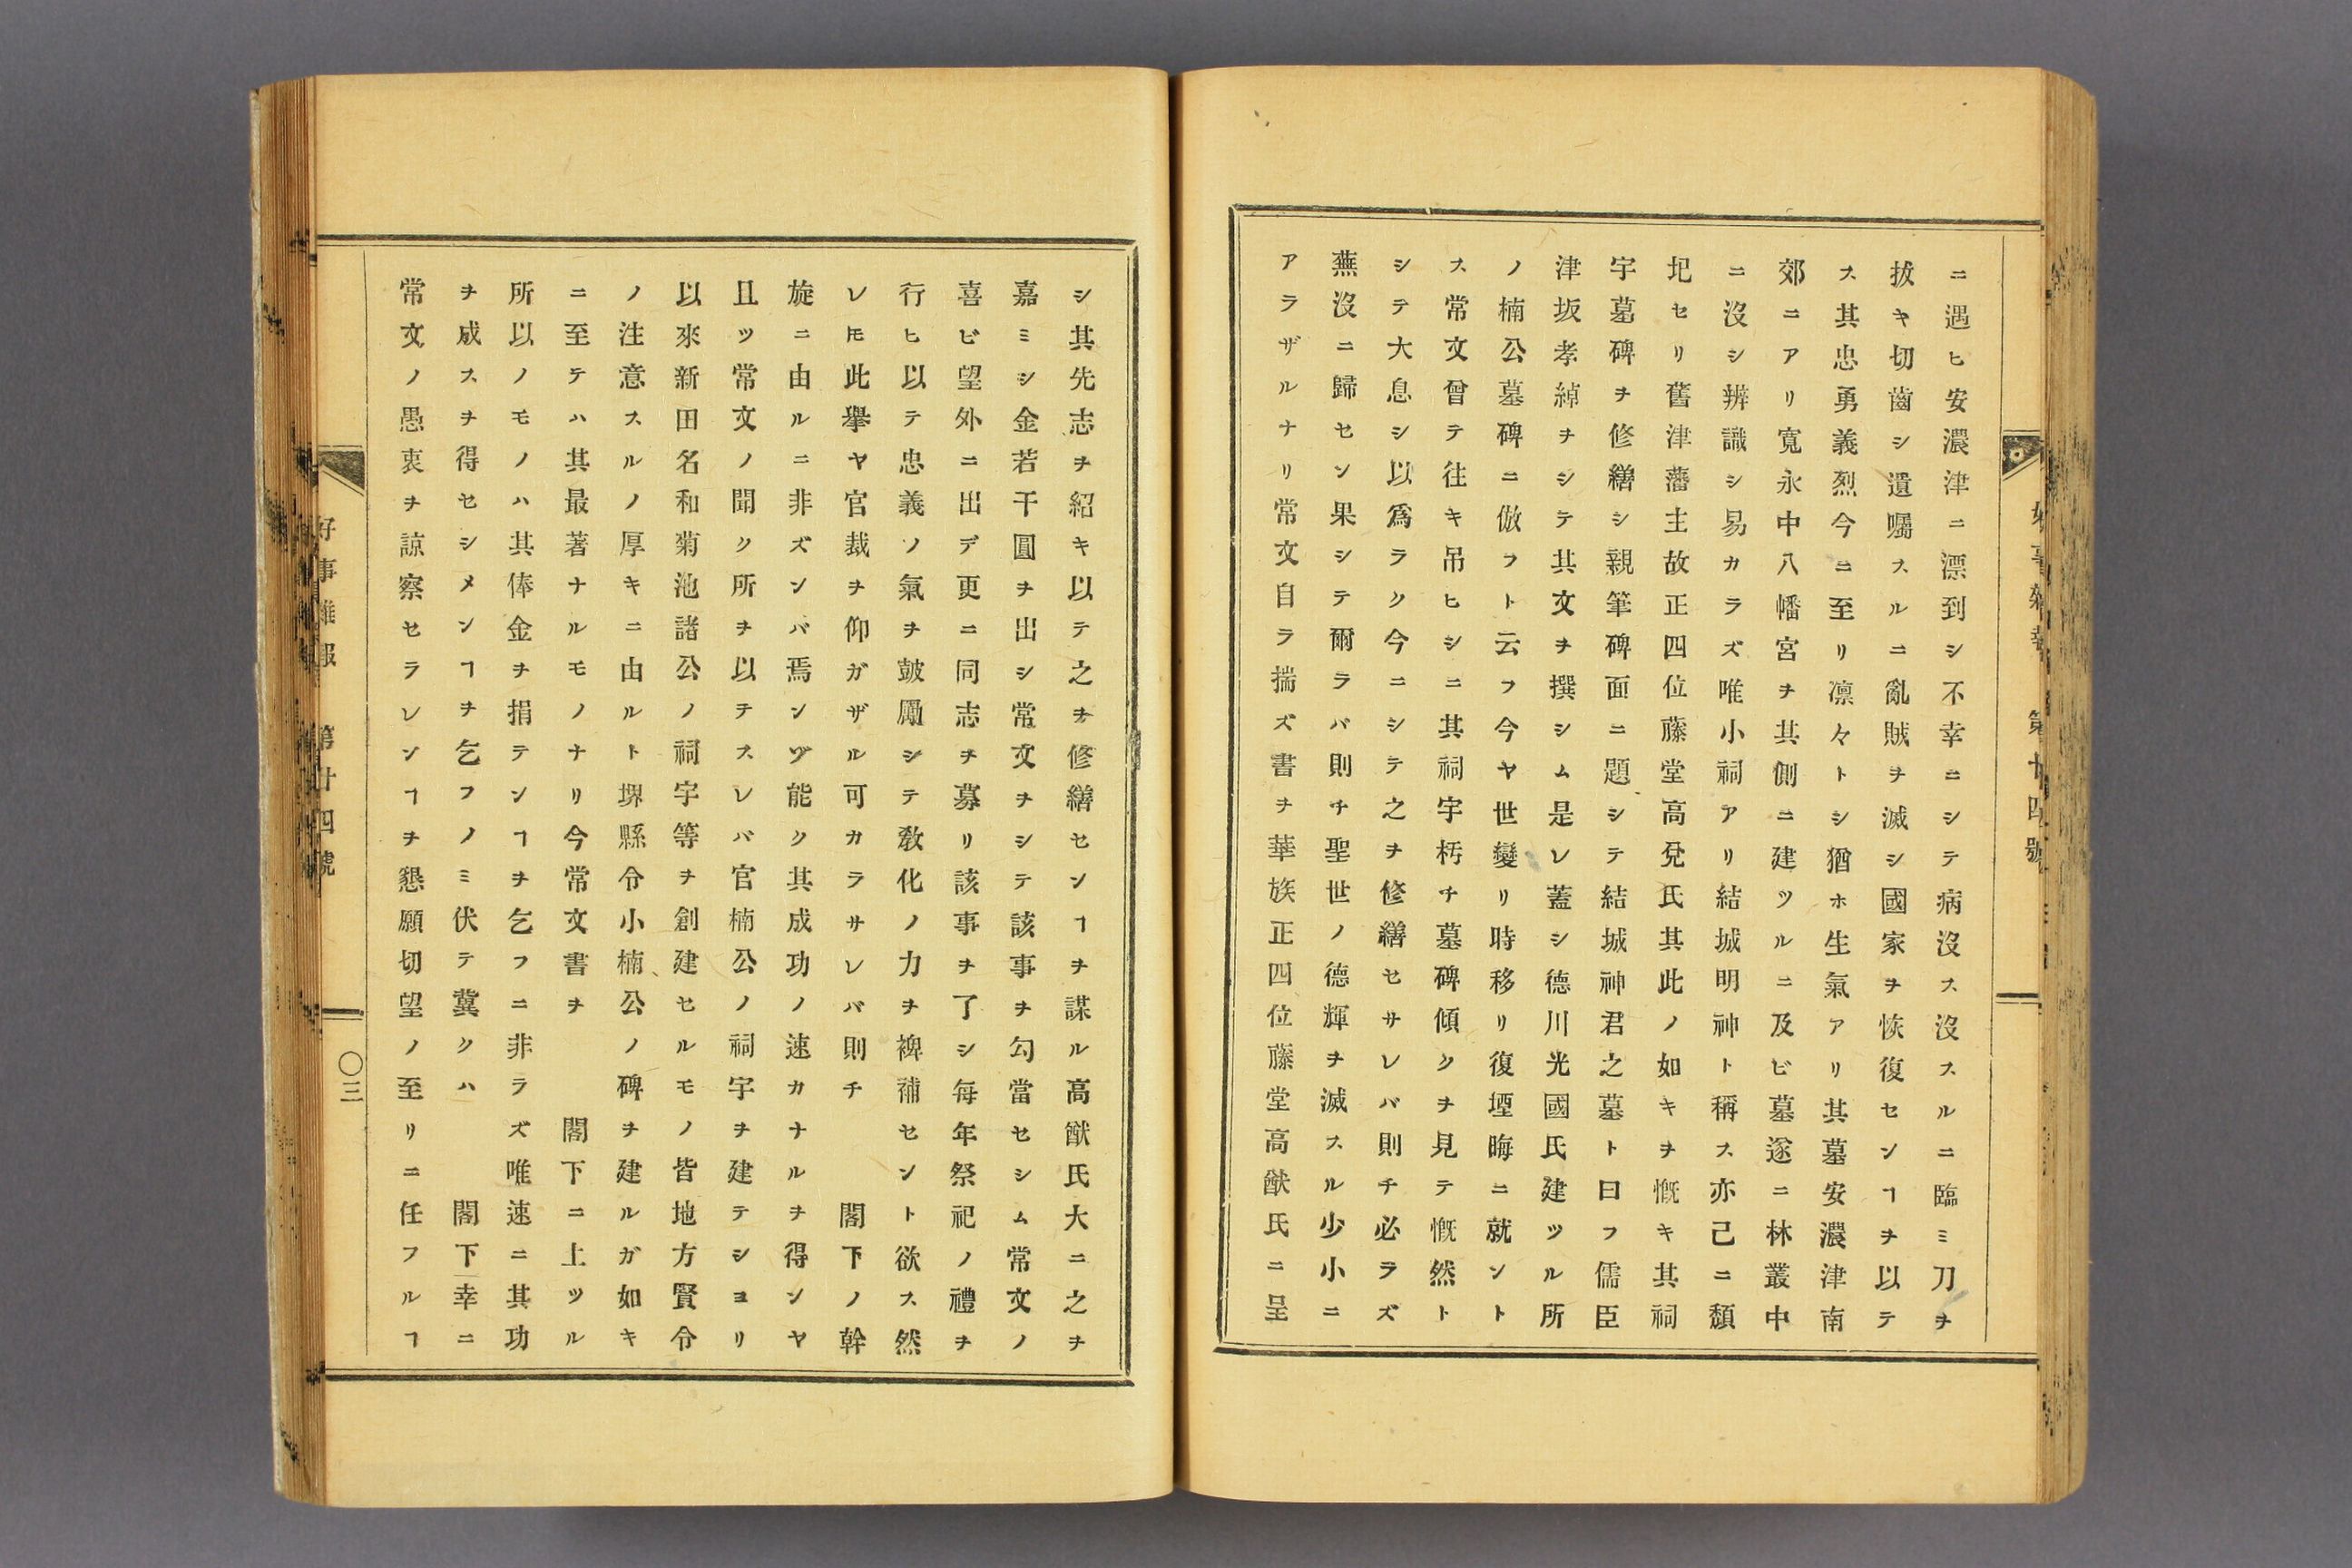 ニ遇ヒ安濃津ニ漂到シ不幸ニシテ病沒ス沒スルニ臨ミ刀ヲ
拔キ切齒シ遺囑スルニ亂賊ヲ滅シ國家ヲ恢復センヿヲ以テ
ス其忠勇義烈今ニ至リ凛々トシ猶ホ生氣アリ其墓安濃津南
郊ニアリ寬永中八幡宮ヲ其側ニ建ツルニ及ビ墓遂ニ林叢中
ニ沒シ辨識シ易カラズ唯小祠アリ結城明神ト稱ス亦己ニ頽
圯セリ舊津藩主故正四位藤堂高兌氏其此ノ如キヲ慨キ其祠
宇墓碑ヲ修繕シ親筆碑面ニ題シテ結城神君之墓ト曰フ儒臣
津坂孝綽ヲシテ其文ヲ撰シム是レ蓋シ德川光國氏建ツル所
ノ楠公墓碑ニ倣フト云フ今ヤ世變リ時移リ復堙晦ニ就ント
ス常文曾テ往キ吊ヒシニ其祠宇朽チ墓碑傾クヲ見テ慨然ト
シテ大息シ以爲ラク今ニシテ之ヲ修繕セサレバ則チ必ラズ
蕪沒ニ歸セン果シテ爾ラバ則チ聖世ノ德輝ヲ滅スル少小ニ
アラザルナリ常文自ラ揣ズ書ヲ華族正四位藤堂高猷氏ニ呈
シ其先志ヲ紹キ以テ之ヲ修繕センヿヲ謀ル高猷氏大ニ之ヲ
嘉ミシ金若干圓ヲ出シ常文ヲシテ該事ヲ勾當セシム常文ノ
喜ビ望外ニ出デ更ニ同志ヲ募リ該事ヲ了シ每年祭祀ノ禮ヲ
行ヒ以テ忠義ノ氣ヲ皷勵シテ敎化ノ力ヲ裨補セント欲ス然
レ𪜈此擧ヤ官裁ヲ仰ガザル可カラサレバ則チ　閣下ノ幹
旋ニ由ルニ非ズンバ焉ンゾ能ク其成功ノ速カナルヲ得ンヤ
且ツ常文ノ聞ク所ヲ以テスレバ官楠公ノ祠宇ヲ建テシヨリ
以來新田名和菊池諸公ノ祠宇等ヲ創建セルモノ皆地方賢令
ノ注意スルノ厚キニ由ルト堺縣令小楠公ノ碑ヲ建ルガ如キ
ニ至テハ其最著ナルモノナリ今常文書ヲ　閣下ニ上ツル
所以ノモノハ其俸金ヲ捐テンヿヲ乞フニ非ラズ唯速ニ其功
ヲ成スヲ得セシメンヿヲ乞フノミ伏テ冀クハ　閣下幸ニ
常文ノ愚衷ヲ諒察セラレンヿヲ懇願切望ノ至リニ任フルヿ
好事雜報　第廿四號　〇三